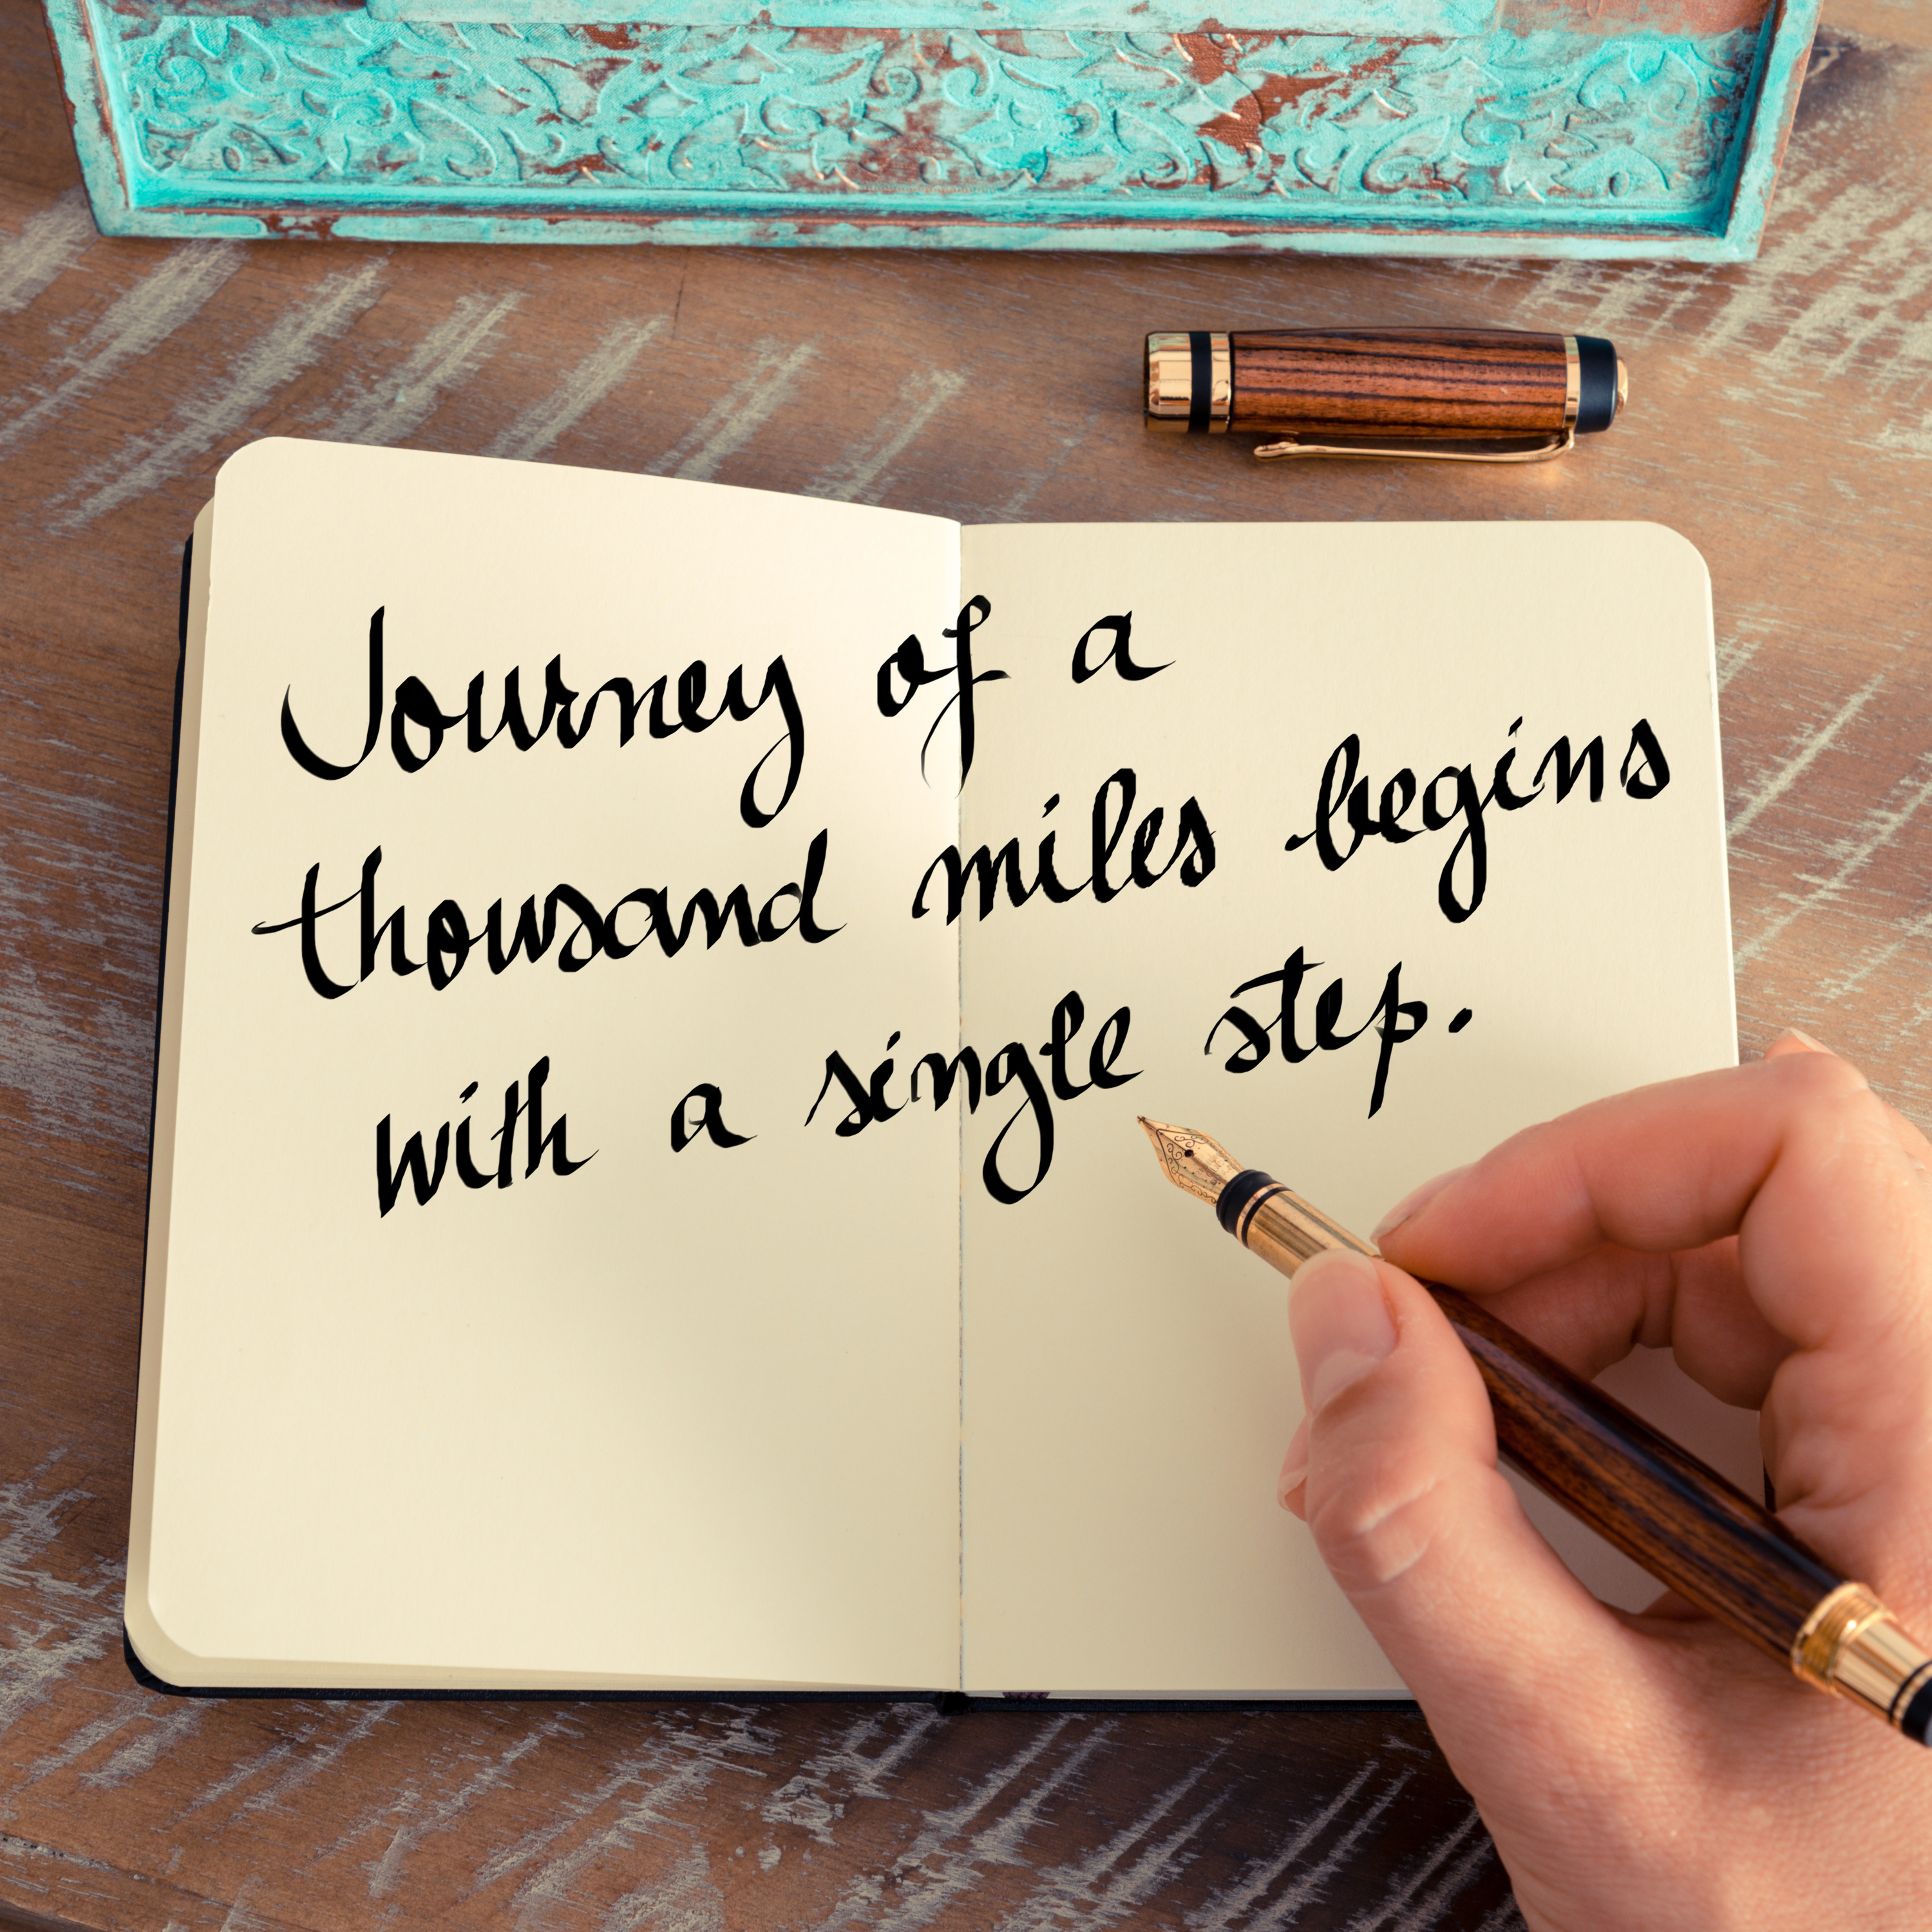 Journey of a
thousand miles begins
with a single step.